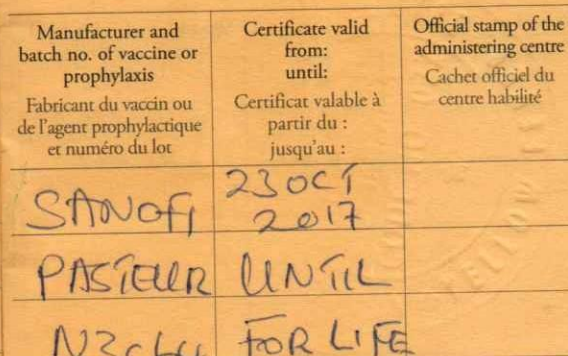 Manufacturer and
batch no. of vaccine or
prophylaxis
Fabricant du vaccin ou
de l'agent prophylactique
et numéro du lot
Certificate valid
from:
until:
Certificat valable à
partir du :
jusqu'au :
Official stamp of the
administering centre
Cachet officiel du
centre habilité
SANOFI
23 OCT
2017
PASTEUR
UNTIL
FOR LIFE
YELLOW